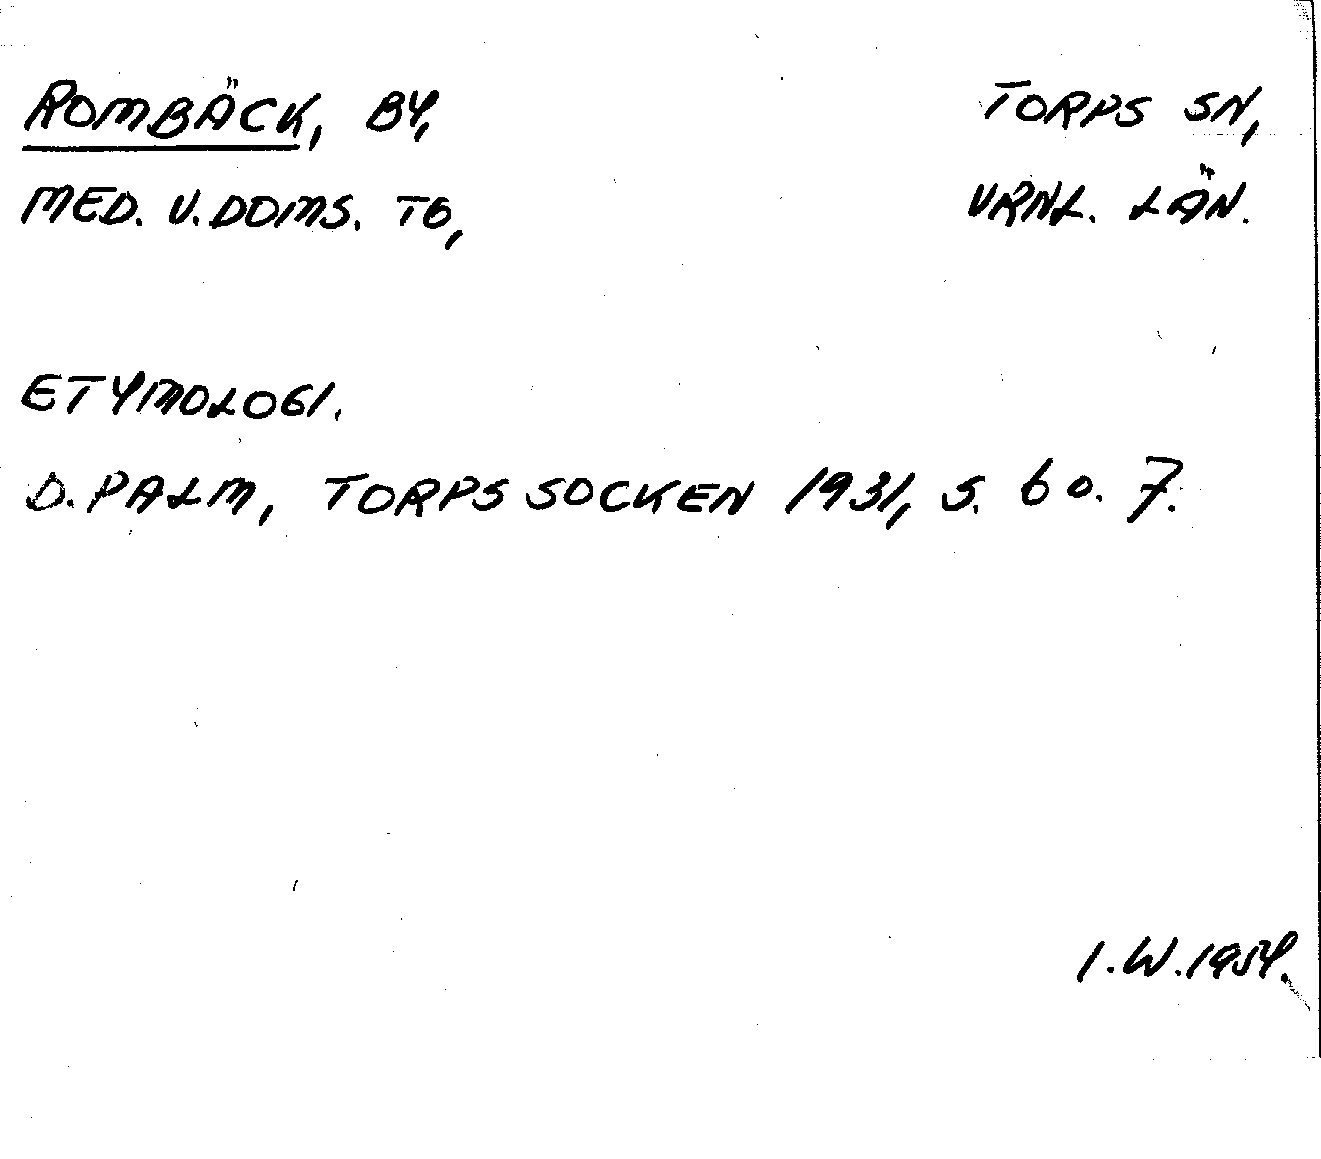 ROMBÄCK, BY, TORPS SN,
MED. V. DOMS. TG, VRNL. LÄN.
ETYMOLOGI.
D. PALM, TORPS SOCKEN 1931, S. 6 o. 7.
I. W. 1954.